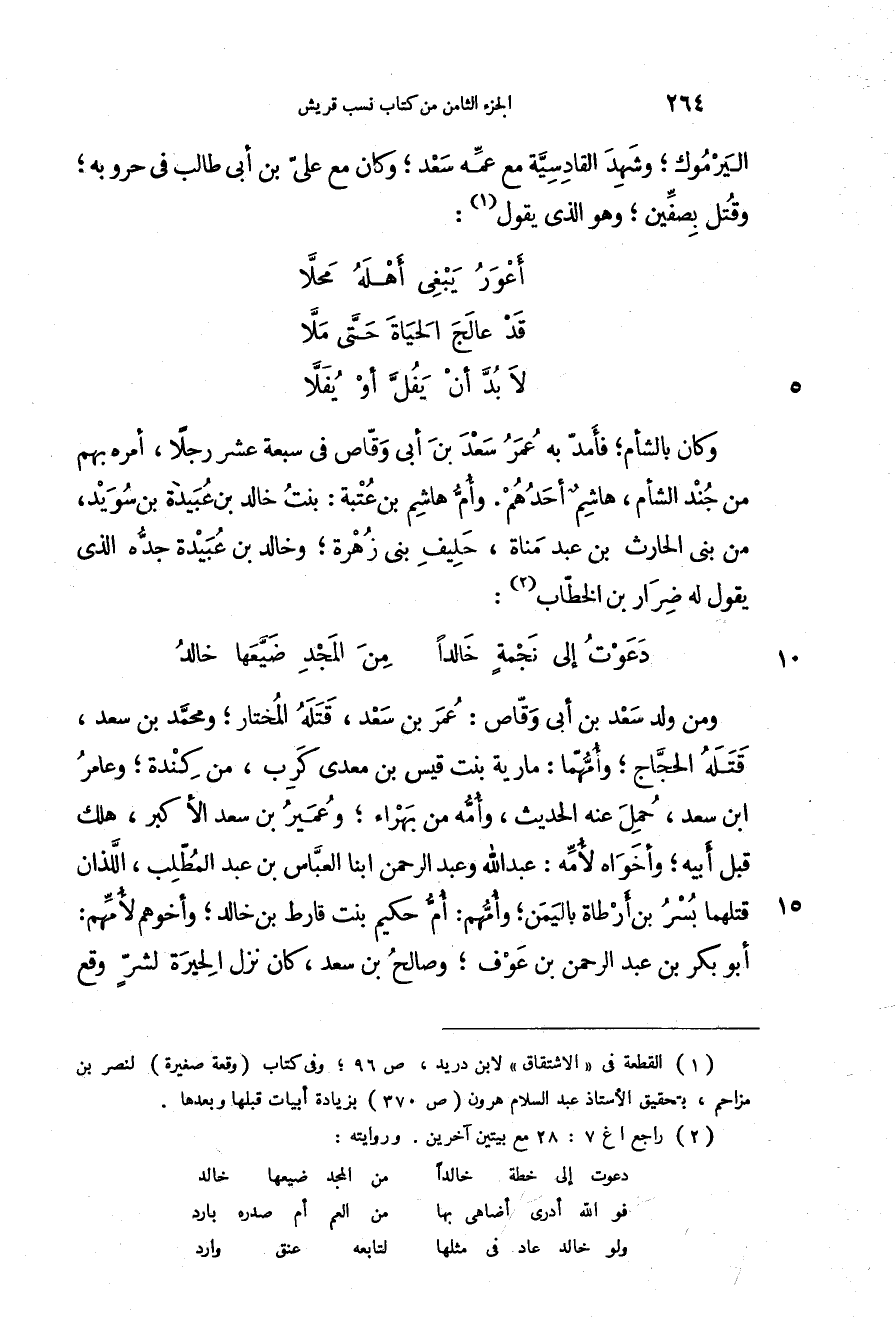 ٢٦٤ الجزء الثامن من كتاب نسب قريش
اليَرْمُوك ؛ وشَهِدَ القادِسِيَّة مع عمِّه سَعْد ؛ وكان مع علىّ بن أبى طالب فى حروبه ؛
وقُتل بِصفِّين ؛ وهو الذى يقول(١) :
أَعْوَرُ يَبْغِى أَهْلَهُ مَحلَّا
قَدْ عالَجَ الحَيَاةَ حَتَّى مَلَّا
٥ لاَ بُدَّ أنْ يَفُلَّ أوْ يُفَلَّا
وكان بالشأم؛ فأَمدّ به عُمَرُ سَعْدَ بنَ أبى وَقّاص فى سبعة عشر رجلًا ، أمره بهم
من جُنْد الشأم ، هاشِمٌ أحَدُهُمْ. وأُمُّ هاشِم بن عُتْبة : بنتُ خالد بن عُبَيدْة بن سُوَيْد،
من بنى الحارث بن عبد مَناة ، حَلِيفِ بنى زُهْرة ؛ وخالد بن عُبَيْدة جدُّه الذى
يقول له ضِرَار بن الخطّاب(٢) :
١٠ دَعَوْتُ إلى نَجْمةٍ خَالداً مِنَ المَجْدِ ضَيَّعَها خالدُ
ومن ولد سَعْد بن أبى وَقّاص : عُمَر بن سَعْد ، قَتَلَهُ المُختار ؛ ومحمَّد بن سعد ،
قَتَلَهُ الحجَّاج ؛ وأُمُّهما : مارية بنت قيس بن معدى كَرِب ، من كِنْدة ؛ وعامرُ
ابن سعد ، حُملَ عنه الحديث ، وأُمُّه من بَهْراء ؛ وعُمَيرُ بن سعد الأكبر ، هلك
قبل أَبيه؛ وأخَوَاه لأُمِّه : عبدالله وعبد الرحمن ابنا العبَّاس بن عبد المطّلب ، اللَّذان
١٥ قتلهما بُسْرُ بن أَرْطاة باليَمَن؛ وأُمُّهم: أُمُّ حكيم بنت قارط بن خالد؛ وأخوهم لأُمِّهم:
أبو بكر بن عبد الرحمن بن عَوْف ؛ وصالحُ بن سعد ، كان نزل الحِيرَة لشرٍّ وقع
(١) القطعة فى «الاشتقاق» لابن دريد ، ص ٩٦ ؛ وفى كتاب (وقعة صفيرة) لنصر بن
مزاحم ، بتحقيق الأستاذ عبد السلام هرون (ص ٣٧٠) بزيادة أبيات قبلها وبعدها .
(٢) راجع ا غ ٧ : ٢٨ مع بيتين آخرين . وروايته :
دعوت إلى خطة خالداً من المجد ضيعها خالد
فو الله أدرى أضاهى بها من العم أم صدره بارد
ولو خالد عاد فى مثلها لتابعه عنق وارد